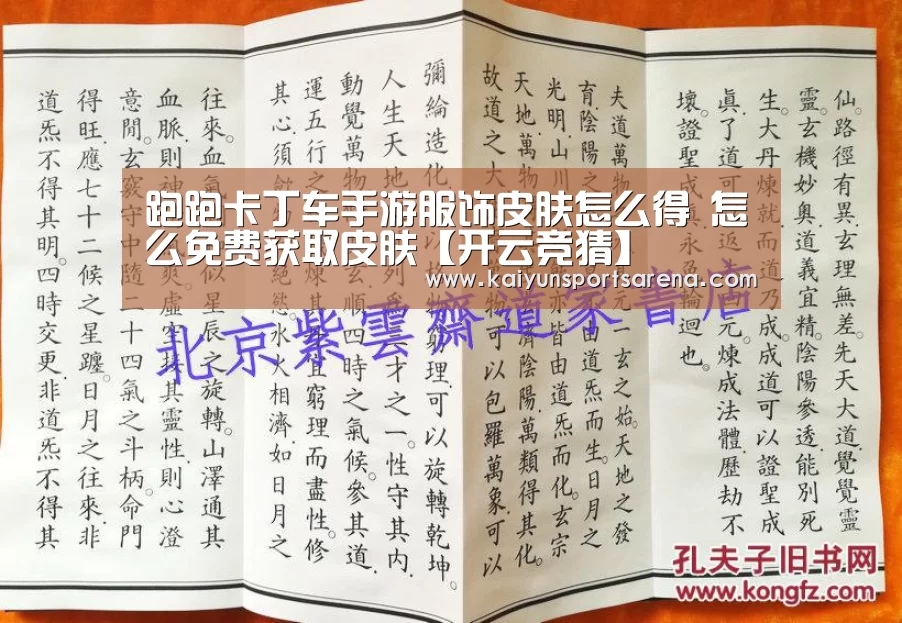 跑跑卡丁车手游服饰皮肤怎么得 怎
么免费获取皮肤【开云竞猜】
www.kaiyunsportsarena.com
仙。路徑有異。玄理無差。先天大道。覺靈
靈。玄機妙奧。道義宜精。陰陽參透。能別死
生。大丹煉就。而道乃成。成道可以證聖成
真。了道可返元。煉成法體。歷劫不
壞。證聖成真。永輪迴也。
夫道萬物元一玄之始。天地之發
育。陰陽之不由道炁而生。日月之
光明。山川亦皆由道炁而化。玄宗
天地。萬物濟陰陽。萬類得其化。
故道之大物。可以包羅萬象。可以
彌綸造化窮理。可以旋轉乾坤。
人生天地列三才之一。性守其內
動覺萬物玄。順四時之氣候。參其道
運五行之煉其且窮理而盡性。修
其心。須絕慾。水火相濟。如日月之
往來。血氣似星辰之旋轉。山澤通其
血脈。則神爽。虛空接其靈性。則心澄
意閒。玄竅守中。隨二十四氣之斗柄。命門
得旺。應七十二候之星躔。日月之往來。非
道炁不得其明。四時交更。非道炁不得其
北京紫雲齋道家書店
孔夫子旧书网
www.kongfz.com